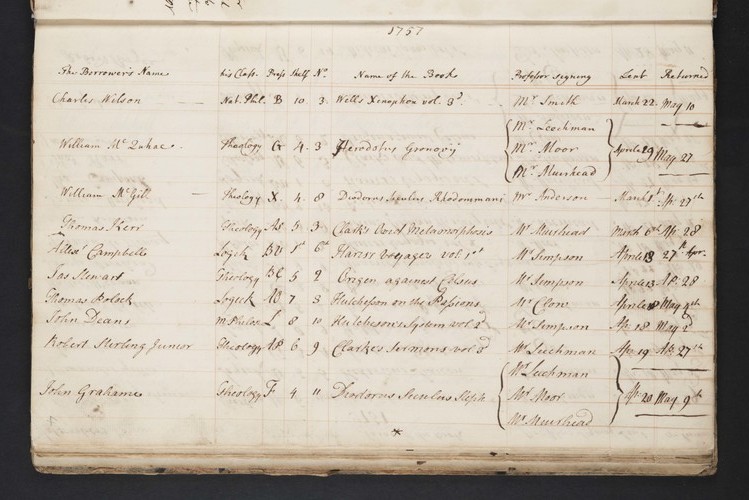 1757
The Borrower's Name his Class. Press Shelf No. Name of the Book Professor signing Lent Returned
Charles Wilson Nat. Phil. B 10 3. Wells Xenophon vol. 3d. Mr. Smith March 22. May 10
Mr. Leechman
William McQuhae. Theology G 4. 3 Herodotus Gronovij Mr. Moor Aprile 29 May 27
Mr. Muirhead
William McGill Theology X. 4. 8 Diodorus Siculus Rhodommani Mr Anderson March 1st Ap. 27th
Thomas Kerr Theology 5 3 Clark's Ovid Metamorphosis Mr Muirhead March 6th Ap. 28
Campbell Logick 1st 6t Harris' Voyages vol. 1st Mr. Simpson Aprile 13 27th Apr.
Jas Stewart Theology BC 5 2 Origen against Celsus Mr Simpson Aprile 13 Ap. 28
Thomas Logick 7 3 Hutcheson on the Passions Mr Clow Aprile 18 May
John Deans M Philos. L 8 10 Hutcheson's System vol. 2d Mr Simpson Ap. 18 May
Robert Sterling Junior Theology 6 9 Clarke's Sermons vol Mr Leechman Apr. 19 Ap. 27th
Mr. Leechman
John Grahame Theology F 4. 11 Diodorus Siculus Steph Mr. Moor Ap. 28 May 9th
Mr Muirhead